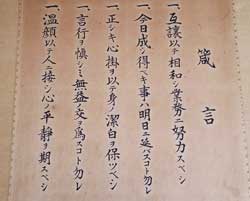 箴言
一、互譲以テ相和シ業務ニ努力スベシ
一、今日成シ得ベキ事ハ明日ニ延バスコト勿レ
一、正シキ心掛ヲ以テ身ノ潔白ヲ保ツベシ
一、言行ヲ愼シミ無益ノ交ヲ爲スコト勿レ
一、温顔以テ人ニ接シ心ノ平静ヲ期スベシ